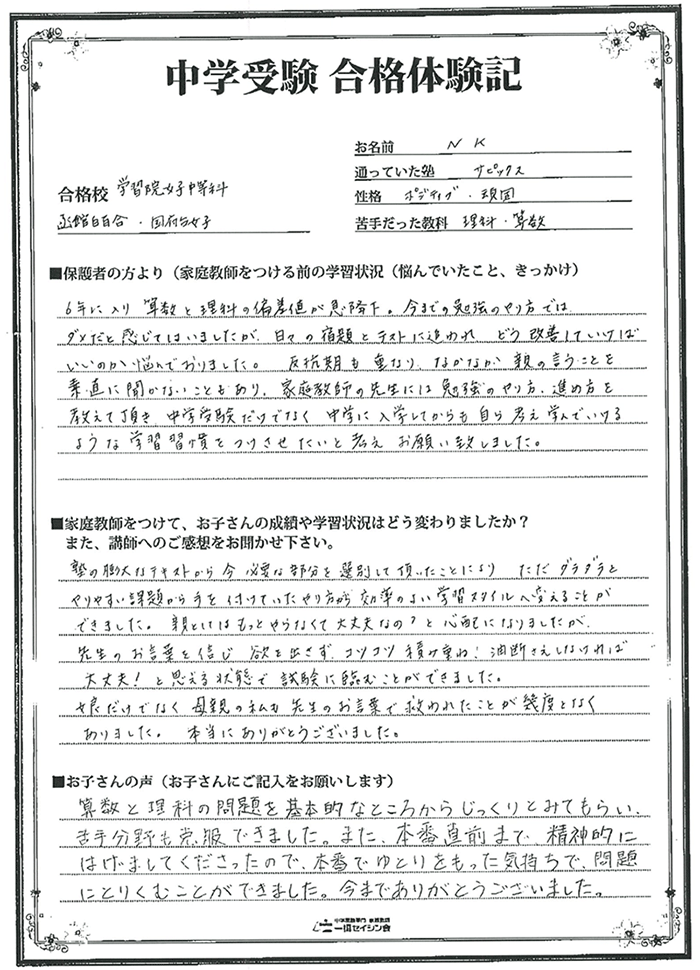 中学受験 合格体験記
お名前 N K
通っていた塾 サピックス
合格校 学習院女子中等科
性格 ポジティブ・頑固
函館白百合・国府台女子
苦手だった教科 理科・算数
■保護者の方より（家庭教師をつける前の学習状況（悩んでいたこと、きっかけ）
6年に入り 算数と理科の偏差値が急降下。今までの勉強のやり方では
ダメだと感じてはいましたが、日々の宿題とテストに追われ どう改善していけば
いいのか悩んでおりました。 反抗期も重なり、なかなか親の言うことを
素直に聞かないこともあり、家庭教師の先生には勉強のやり方、進め方を
教えて頂き 中学受験だけでなく 中学に入学してからも自ら考え学んでいける
ような学習習慣をつけさせたいと考え お願い致しました。
■家庭教師をつけて、お子さんの成績や学習状況はどう変わりましたか？
また、講師へのご感想をお聞かせ下さい。
塾の膨大なテキストから今 必要な部分を選別して頂いたことにより ただダラダラと
やりやすい課題から手を付けていたやり方から 効率のよい学習スタイルへ変えることが
できました。 親としてはもっとやらなくて大丈夫なの？と心配になりましたが、
先生のお言葉を信じ 欲を出さず、コツコツ積み重ね！油断さえしなければ
大丈夫！と思える状態で試験に臨むことができました。
娘だけでなく 母親の私も先生のお言葉で救われたことが幾度となく
ありました。 本当にありがとうございました。
■お子さんの声（お子さんにご記入をお願いします）
算数と理科の問題を基本的なところからじっくりとみてもらい、
苦手分野も克服できました。また、本番直前まで、精神的に
はげましてくださったので、本番でゆとりをもった気持ちで、問題
にとりくむことができました。今までありがとうございました。
中学受験専門 家庭教師
一橋セイシン会